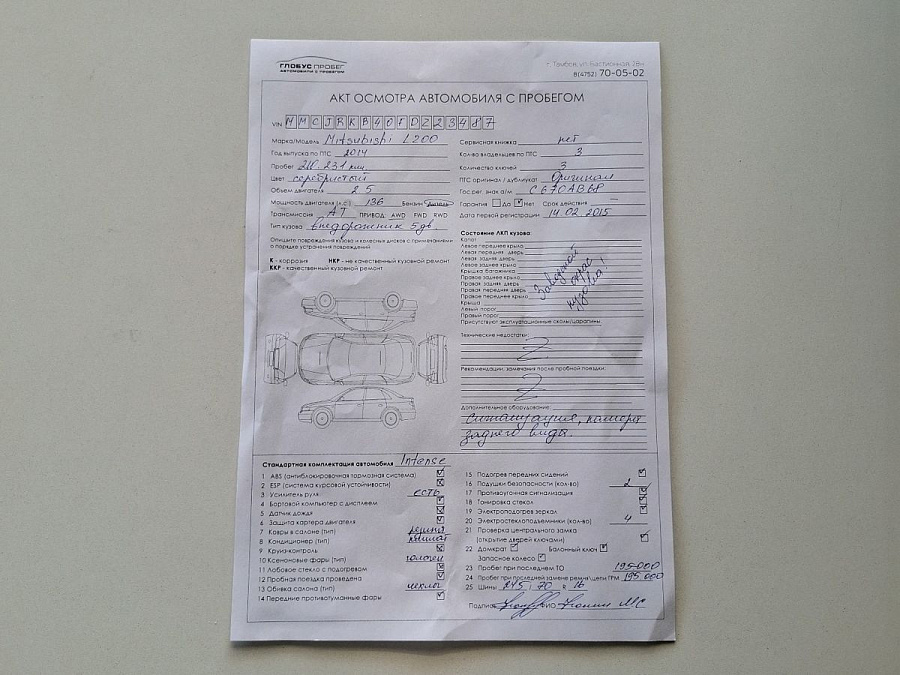 ГЛОБУС ПРОБЕГ
АВТОМОБИЛИ С ПРОБЕГОМ
г. Тамбов, ул. Бастионная, 28н
8(4752) 70-05-02
АКТ ОСМОТРА АВТОМОБИЛЯ С ПРОБЕГОМ
VIN MMCJRKB40FDZ23487
Марка/Модель Mitsubishi L200
Год выпуска по ПТС 2014
Пробег
Цвет серебристый
Объем двигателя 2.5
Мощность двигателя (л.с.) 136 Бензин Дизель
Трансмиссия АТ ПРИВОД: AWD FWD RWD
Тип кузова внедорожник 5 дв.
Опишите повреждения кузова и колесных дисков с примечаниями
о порядке устранения повреждений
К - коррозия НКР - не качественный кузовной ремонт
ККР - качественный кузовной ремонт
Сервисная книжка нет
Кол-во владельцев по ПТС 3
Количество ключей 3
ПТС оригинал / дубликат Оригинал
Гос.рег. знак а/м С670АВ68
Гарантия Да Нет Срок действия –
Дата первой регистрации 14.02.2015
Состояние ЛКП кузова:
Капот
Левое переднее крыло
Левая передняя дверь
Левая задняя дверь
Левое заднее крыло
Крышка багажника
Правое заднее крыло
Правая задняя дверь
Правая передняя дверь
Правое переднее крыло
Крыша
Левый порог
Правый порог
Заводской окрас кузова!
Присутствуют эксплуатационные сколы/царапины.
Технические недостатки:
Z
Рекомендации, замечания после пробной поездки:
Z
Дополнительное оборудование:
сигнализация, камера
заднего вида.
Стандартная комплектация автомобиля Intense
1 ABS (антиблокировочная тормозная система)
2 ESP (система курсовой устойчивости)
3 Усилитель руля есть
4 Бортовой компьютер с дисплеем
5 Датчик дождя
6 Защита картера двигателя
7 Ковры в салоне (тип) резина
8 Кондиционер (тип) климат
9 Круиз-контроль
10 Ксеноновые фары (тип) галоген
11 Лобовое стекло с подогревом
12 Пробная поездка проведена
13 Обивка салона (тип) чехлы
14 Передние противотуманные фары
15 Подогрев передних сидений
16 Подушки безопасности (кол-во) 2
17 Противоугонная сигнализация
18 Тонировка стекол
19 Электроподогрев зеркал
20 Электростеклоподъемники (кол-во) 4
21 Проверка центрального замка
(открытие дверей ключами)
22 Домкрат Балонный ключ
Запасное колесо
23 Пробег при последнем ТО 195000
24 Пробег при последней замене ремня/цепи ГРМ 195.000
25 Шины 245 / 70 R 16
Подпись ФИО